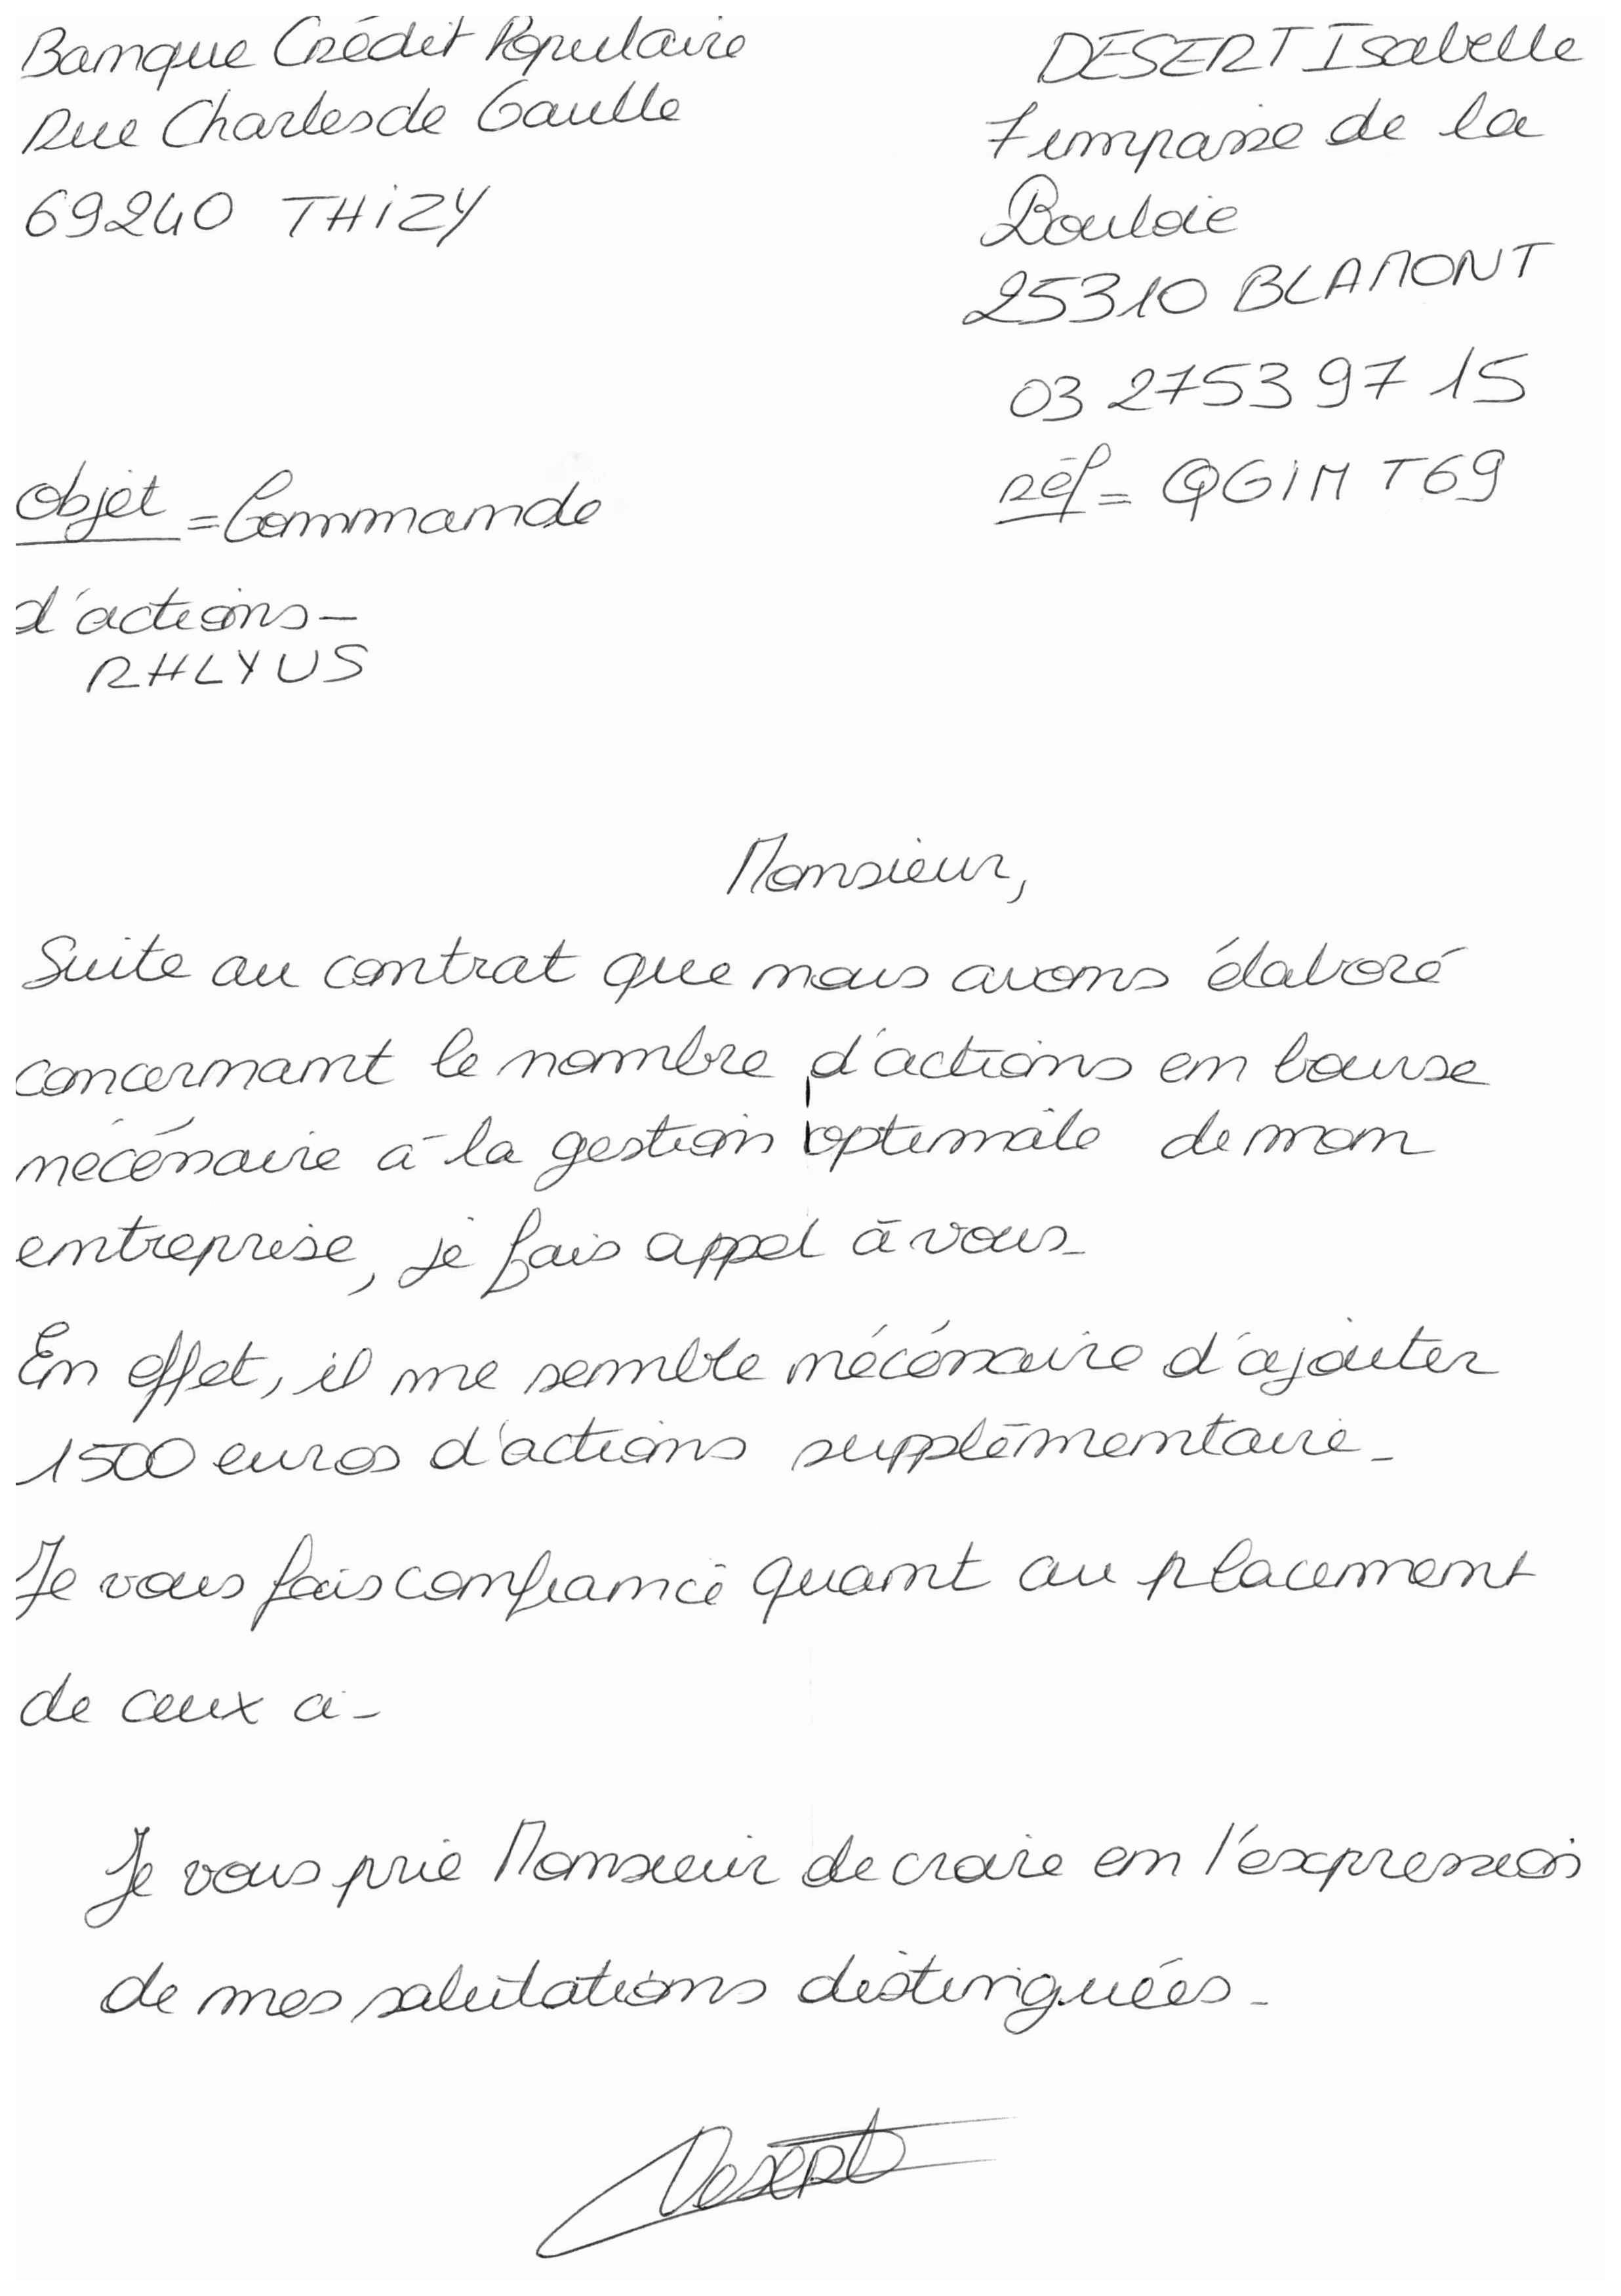 Banque Crédit Populaire
Rue Charles de Gaulle
69240 THiZY
DESERT Isabelle
7 impasse de la
Bouloie
25310 BLAMONT
03 27 53 97 15
réf = QGIMT69
Objet = Commande
d'actions -
RHLYUS
Monsieur,
Suite au contrat que nous avons élaboré
concernant le nombre d'actions en bourse
nécéssaire à la gestion optimale de mon
entreprise, je fais appel à vous.
En effet, il me semble nécéssaire d'ajouter
1500 euros d'actions supplémentaire.
Je vous fais confiance quant au placement
de ceux ci.
Je vous prie Monsieur de croire en l'expression
de mes salutations distinguées.
Desert